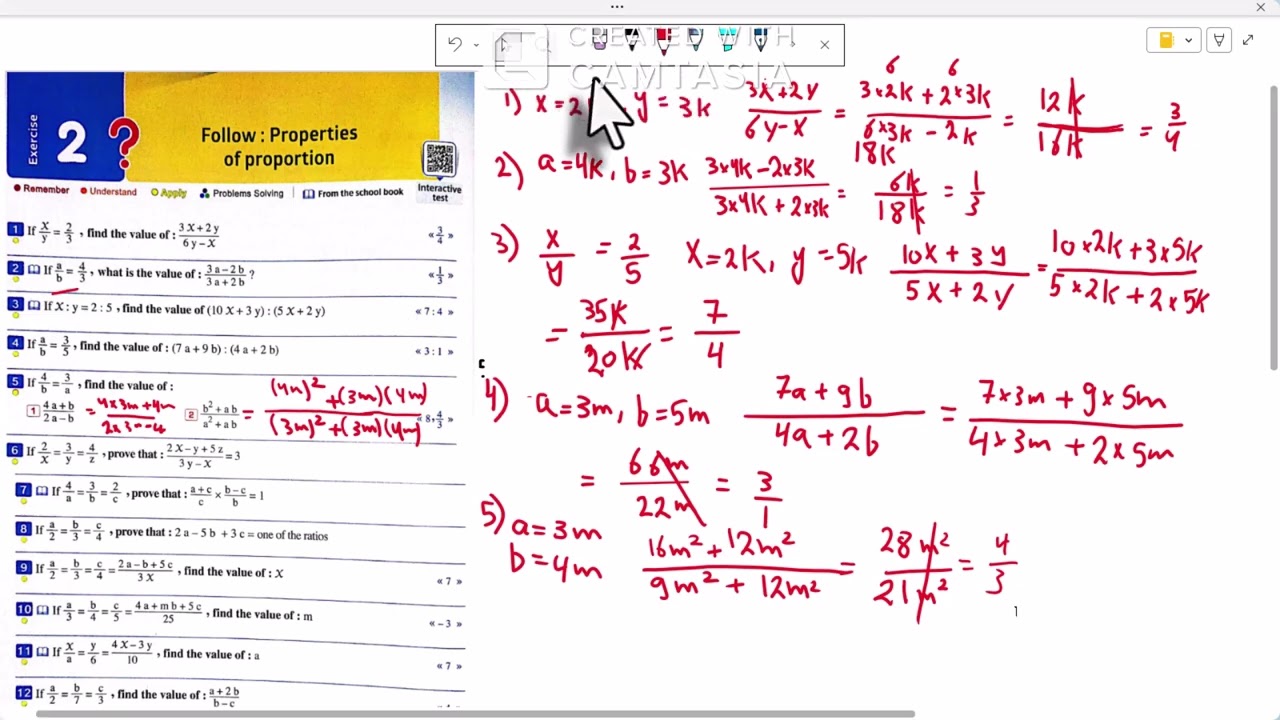 CREATED WITH
CAMTASIA
Exercise
2 ?
Follow : Properties
of proportion
Interactive
test
• Remember • Understand Apply Problems Solving From the school book
1 If x/y = 2/3 , find the value of : 3X+2y / 6y-X «3/4»
2 If a/b = 4/3 , what is the value of : 3a-2b / 3a+2b ? «1/3»
3 If X : y = 2 : 5 , find the value of (10 X + 3 y) : (5 X + 2 y) « 7 : 4 »
4 If a/b = 3/5 , find the value of : (7 a + 9 b) : (4 a + 2 b) « 3 : 1 »
5 If 4/b = 3/a , find the value of :
1 4a+b / 2a-b = 4×3m+4m / 2×3 - 4 2 b²+ab / a²+ab = (4m)²+(3m)(4m) / (3m)²+(3m)(4m) « 8 , 4/3 »
6 If 2/x = 3/y = 4/z , prove that : 2X-y+5z / 3y-X = 3
7 If 4/a = 3/b = 2/c , prove that : a+c / c × b-c / b = 1
8 If a/2 = b/3 = c/4 , prove that : 2 a - 5 b + 3 c = one of the ratios
9 If a/2 = b/3 = c/4 = 2a-b+5c / 3X , find the value of : X « 7 »
10 If a/3 = b/4 = c/5 = 4a+mb+5c / 25 , find the value of : m « - 3 »
11 If x/a = y/6 = 4X-3y / 10 , find the value of : a « 7 »
12 If a/2 = b/7 = c/3 , find the value of : a+2b / b-c
1) x = 2 , y = 3k 3x+2y / 6y-x = 3×2k + 2×3k / 6×3k - 2k = 12k / 16k = 3/4
6 6
18k
2) a = 4k , b = 3k 3×4k - 2×3k / 3×4k + 2×3k = 6k / 18k = 1/3
3) x/y = 2/5 x = 2k , y = 5k 10x + 3y / 5x + 2y = 10×2k + 3×5k / 5×2k + 2×5k
= 35k / 20k = 7/4
4) a = 3m , b = 5m 7a + 9b / 4a + 2b = 7×3m + 9×5m / 4×3m + 2×5m
= 66m / 22m = 3/1
5) a = 3m
b = 4m 16m² + 12m² / 9m² + 12m² = 28m² / 21m² = 4/3